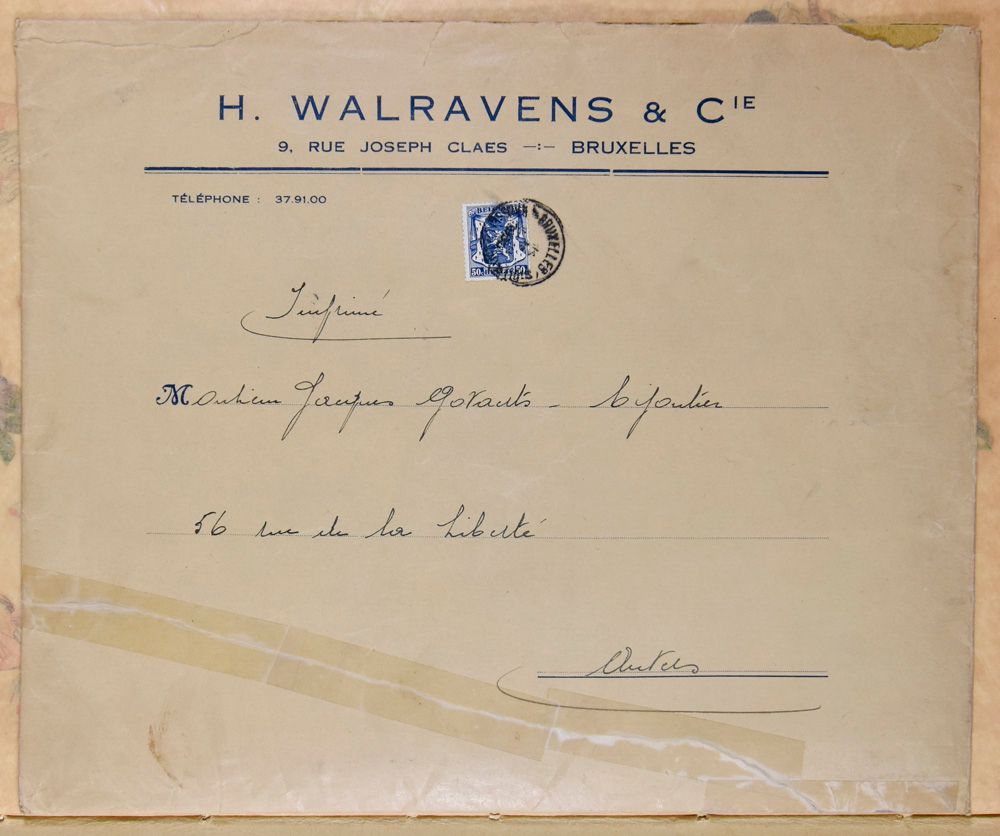 H. WALRAVENS & CIE
9, RUE JOSEPH CLAES —:— BRUXELLES
TÉLÉPHONE : 37.91.00
BRUXELLES
50
Imprimé
Monsieur Jacques Govaerts - bijoutier
56 rue de la Liberté
Anvers